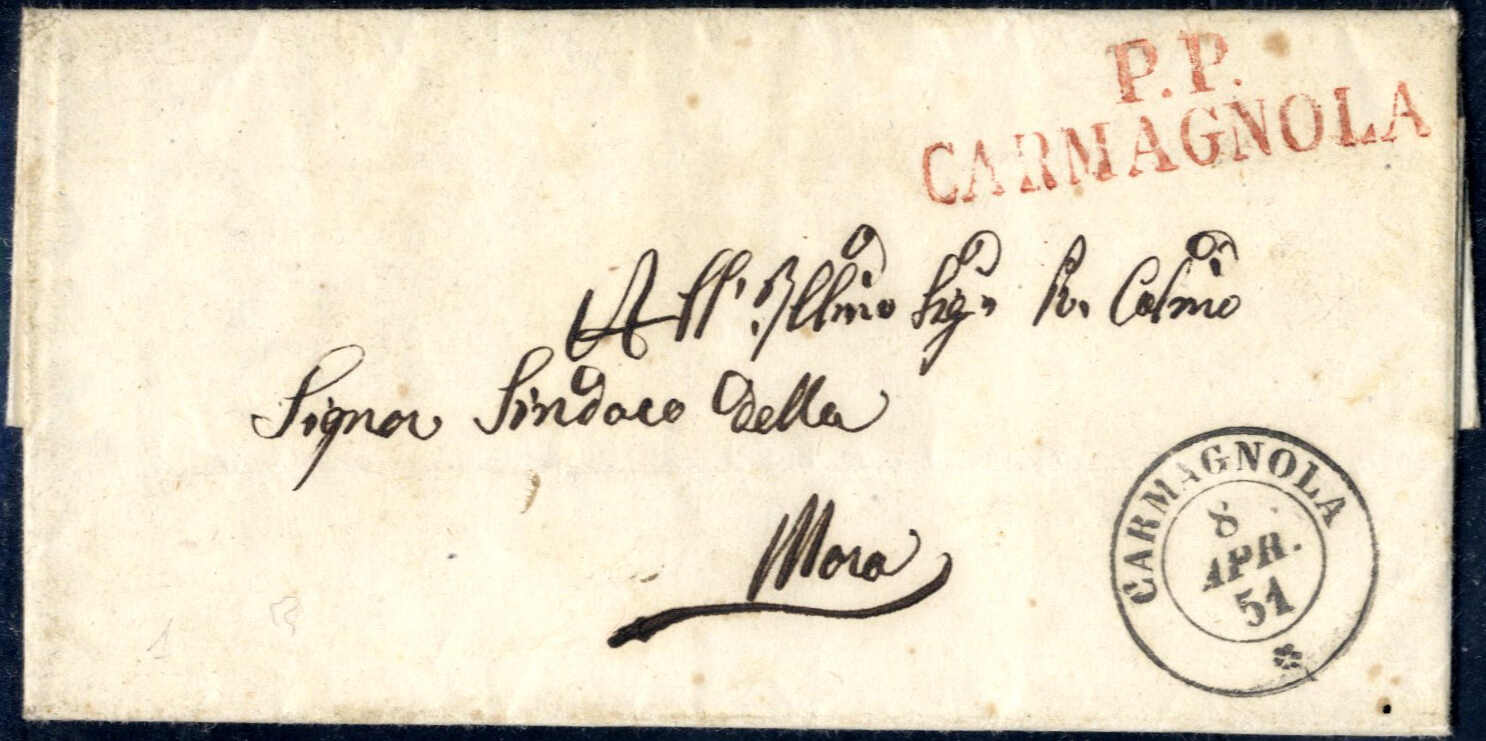 P.P.
CARMAGNOLA
All' Illmo Sigr
Signor Sindaco della
Mora
CARMAGNOLA
8
APR.
51
*